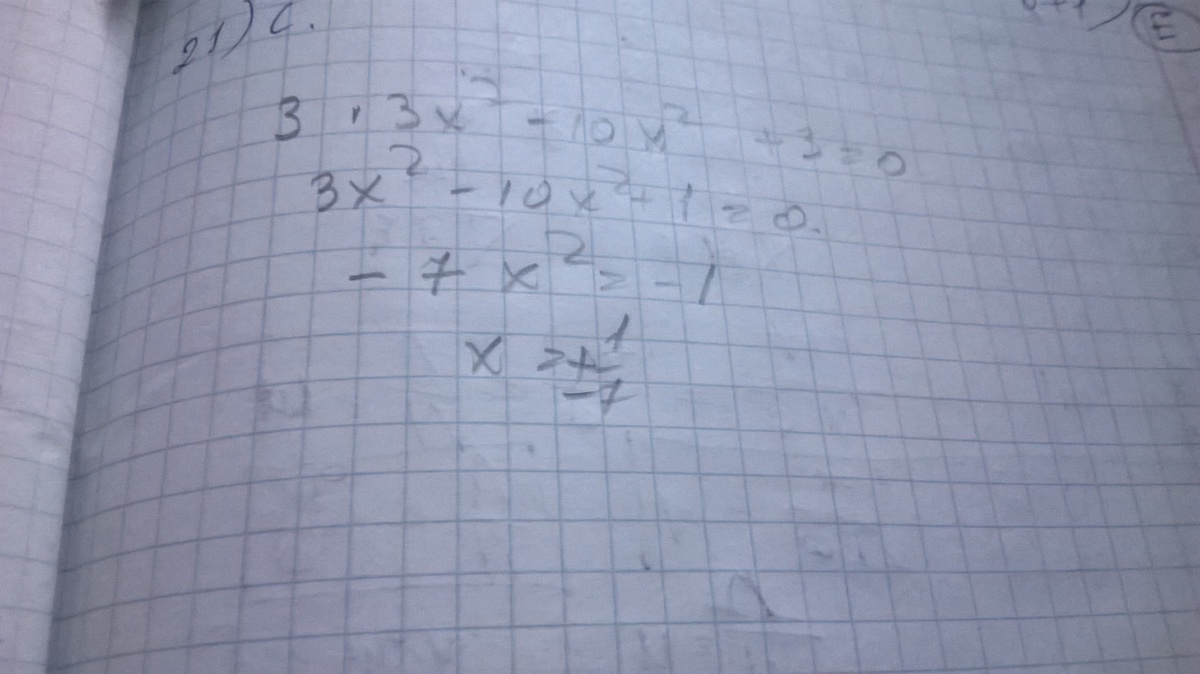 21) C.
3 · 3x² - 10x² + 3 = 0
3x² - 10x² + 1 = 0.
- 7 x² = -1
x = ± 1/7